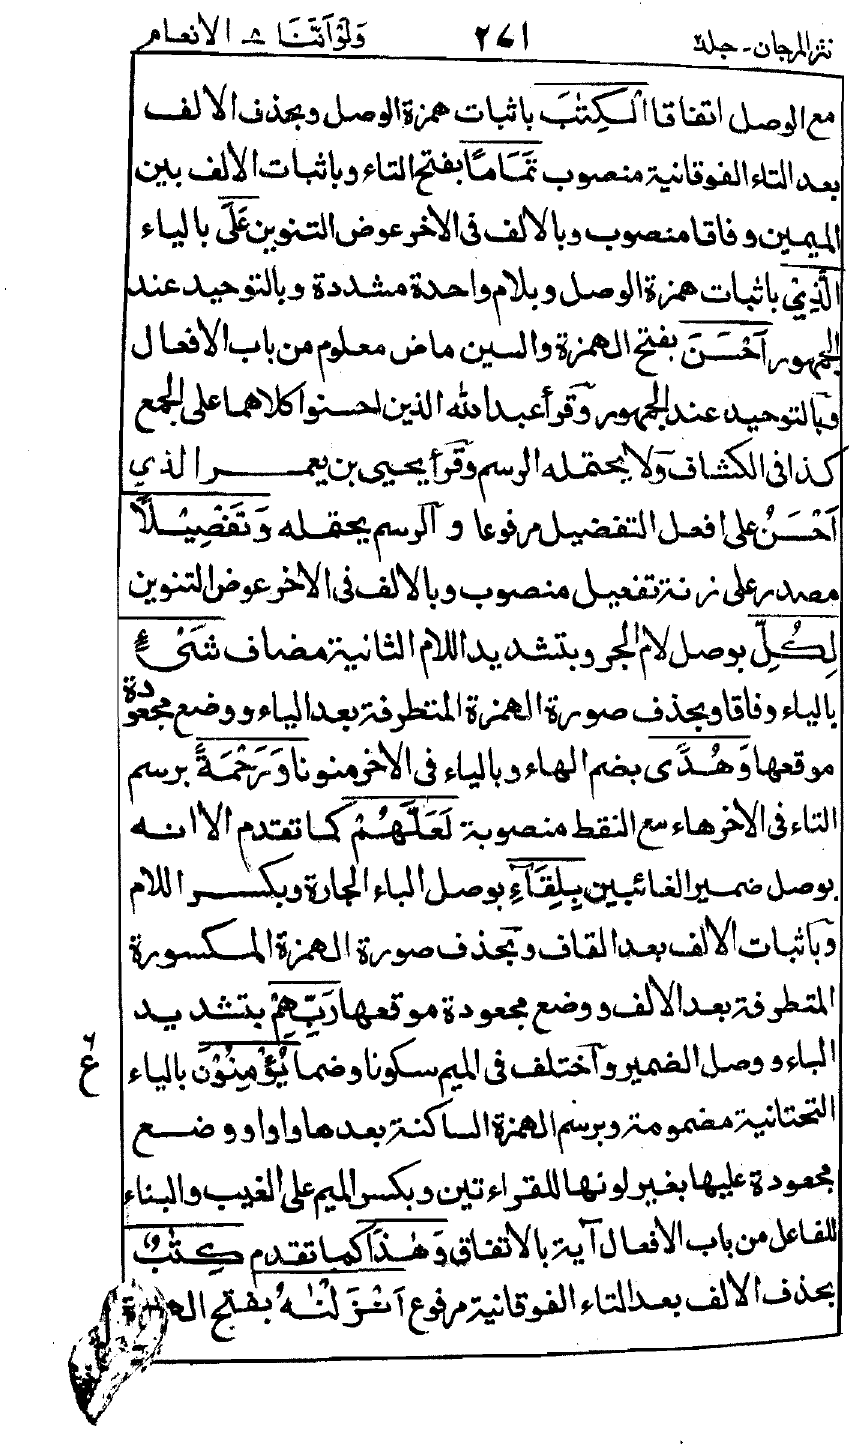 نثر المرجان - جلد٢ ٢٧١ وَلَوْ اَنَّنَا ٨ الانعام
مع الوصل اتفاقا الْكِتٰبَ باثبات همزة الوصل وبحذف الالف
بعد التاء الفوقانية منصوب تَمَامًا بفتح التاء وباثبات الالف بين
الميمين وفاقا منصوب وبالالف فى الاخر عوض التنوين عَلَى بالياء
الَّذِيْ باثبات همزة الوصل وبلام واحدة مشددة وبالتوحيد عند
الجمهور اَحْسَنَ بفتح الهمزة والسين ماض معلوم من باب الافعال
وبالتوحيد عند الجمهور وقرأ عبد الله الذين احسنوا كلاهما على الجمع
كذا فى الكشاف ولا يحتمله الرسم وقرأ يحيى بن يعمر الذي
اَحْسَنُ على افعل التفضيل مرفوعا والرسم يحتمله وَتَفْصِيْلًا
مصدر على زنة تفعيل منصوب وبالالف فى الاخر عوض التنوين
لِكُلِّ بوصل لام الجر وبتشديد اللام الثانية مضاف شَىْءٍ
بالياء وفاقا وبحذف صورة الهمزة المتطرفة بعد الياء ووضع مجعودة
موقعها وَهُدًى بضم الهاء وبالياء فى الاخر منونا وَرَحْمَةً برسم
التاء فى الاخر هاء مع النقط منصوبة لَعَلَّهُمْ كما تقدم الا انه
بوصل ضمير الغائبين بِلِقَآءِ بوصل الباء الجارة وبكسر اللام
وباثبات الالف بعد القاف وبحذف صورة الهمزة المكسورة
المتطرفة بعد الالف ووضع مجعودة موقعها رَبِّهِمْ بتشديد
الباء ووصل الضمير واختلف فى الميم سكونا وضما يُؤْمِنُوْنَ بالياء
التحتانية مضمومة وبرسم الهمزة الساكنة بعدها واوا ووضع
مجعودة عليها بغير لونها للقراءتين وبكسر الميم على الغيب والبناء
للفاعل من باب الافعال آية بالاتفاق وَهٰذَا كما تقدم كِتٰبٌ
بحذف الالف بعد التاء الفوقانية مرفوع اَنْزَلْنٰهُ بفتح
ع
٦